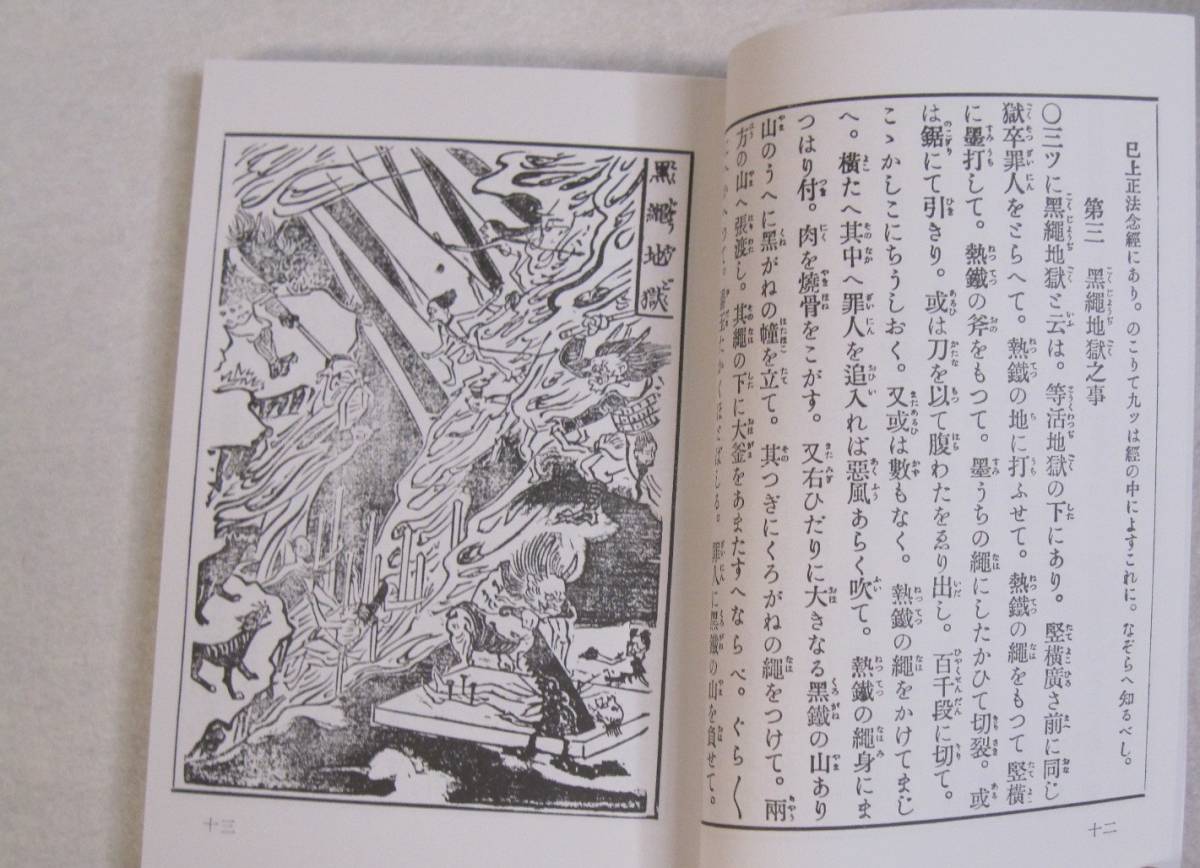 已上正法念經にあり。のこりて九ッは經の中によすこれに。なぞらへ知るべし。
第三　黑繩地獄之事
〇三ツに黑繩地獄と云は。等活地獄の下にあり。竪橫廣さ前に同じ
獄卒罪人をとらへて。熱鐵の地に打ふせて。熱鐵の繩をもつて竪橫
に墨打して。熱鐵の斧をもつて。墨うちの繩にしたかひて切裂。或
は鋸にて引きり。或は刀を以て腹わたをゑり出し。百千段に切て。
こゝかしこにちうしおく。又或は數もなく。熱鐵の繩をかけてまじ
へ。橫たへ其中へ罪人を追入れば惡風あらく吹て。熱鐵の繩身にま
つはり付。肉を燒骨をこがす。又右ひだりに大きなる黑鐵の山あり
山のうへに黑がねの幢を立て。其つぎにくろがねの繩をつけて。兩
方の山へ張渡し。其繩の下に大釜をあまたすへならべ。ぐら〱
罪人に黑鐵の山を負せて。
十二
黑繩地獄
十三